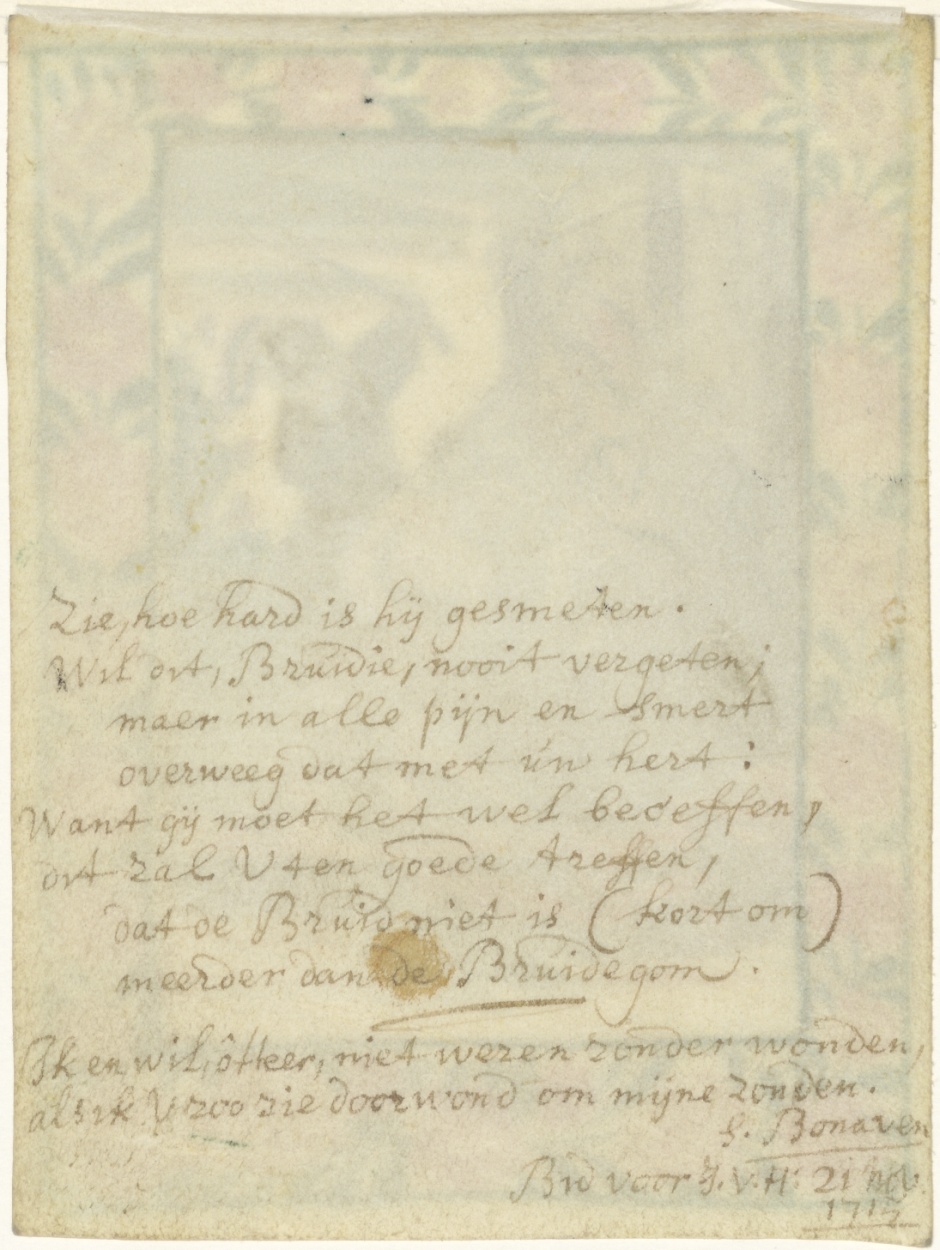 Zie, hoe hard is hij gesmeten.
Wil dit, Bruidie, nooit vergeten;
maer in alle pijn en smert
overweeg dat met úw hert:
Want gij moet het wel beseffen,
dit zal V ten goede treffen,
dat de Bruid niet is (kort om)
meerder dan de Bruidegom.
Ik en wil, ô Heer, niet wezen zonder wonden,
als ik V zoo zie doorwond om mijne zonden.
S. Bonaven
Bid voor J. V. H. 21 nov